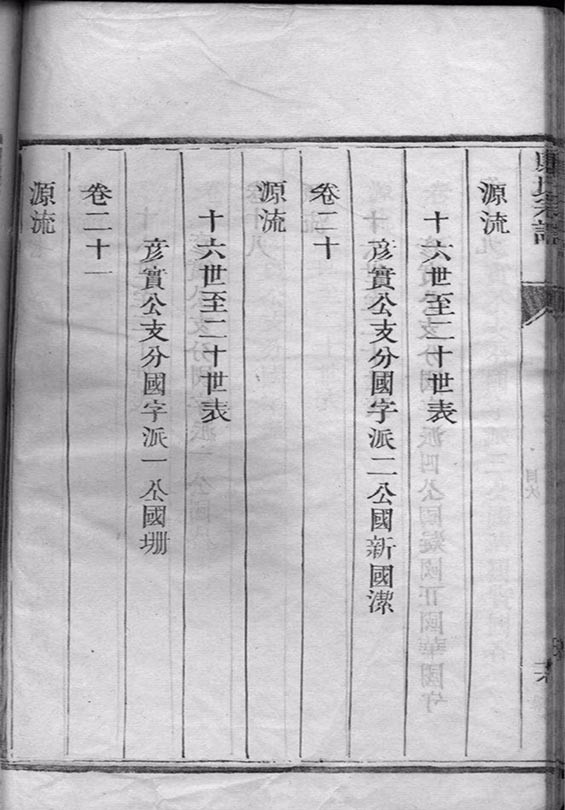 源流
十六世至二十世表
彥實公支分國字派二公國新國潔
卷二十
源流
十六世至二十世表
彥實公支分國字派一公國珊
卷二十一
源流